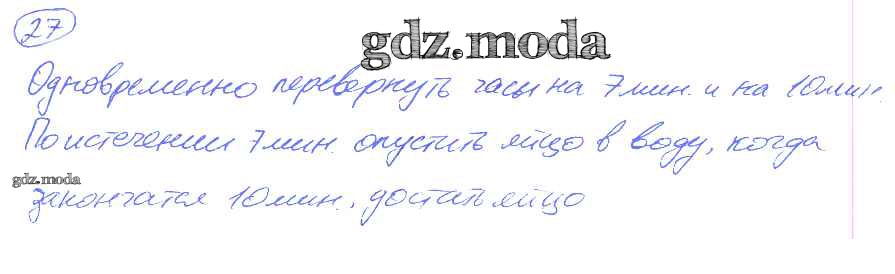 27
gdz.moda
Одновременно перевернуть часы на 7 мин. и на 10 мин.
По истечении 7 мин. опустить яйцо в воду, когда
gdz.moda
закончатся 10 мин., достать яйцо